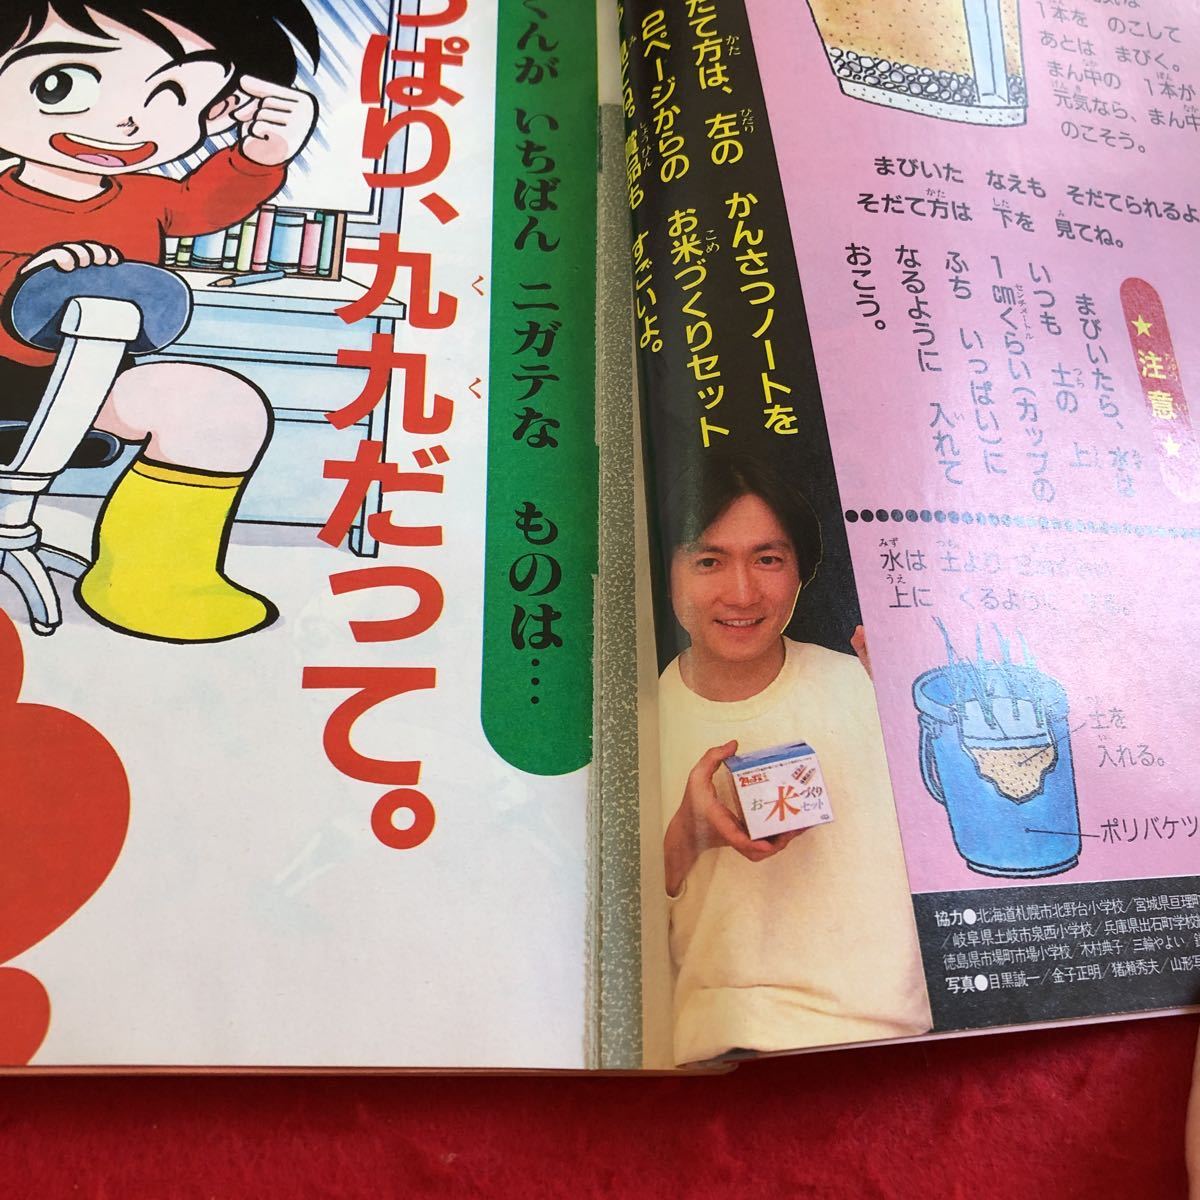 くんが いちばん ニガテな ものは…
っぱり、九九だって。
く
く
だて方は、左の かんさつノートを
かた
ひだり
2ページからの お米づくりセット
こめ
賞品も すごいよ。
しょうひん
1本を のこして
あとは まびく。
まん中の 1本が
元気なら、まん中
のこそう。
まびいた なえも そだてられるよ
そだて方は 下を 見てね。
★注意★
まびいたら、水は
いつも 土の 上
1cmくらい(カップの
センチメートル
ふち いっぱい)に
なるように 入れて
おこう。
みず
水は 土より
うえ
上に くるように する。
土を
入れる。
ポリバケツ
お米づくり
セット
協力●北海道札幌市北野台小学校/宮城県亘理町
/岐阜県土岐市泉西小学校/兵庫県出石町学校
徳島県市場町市場小学校/木村典子/三輪やよい
写真●目黒誠一/金子正明/猪瀬秀夫/山形写